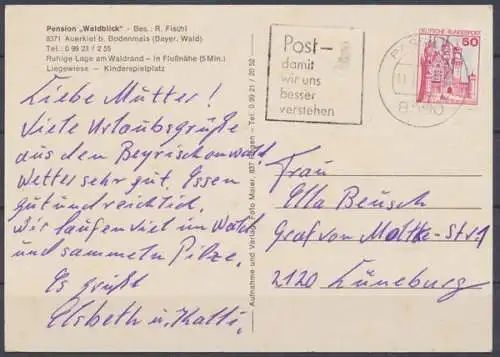 Pension „Waldblick" - Bes.: R. Fischl
8371 Auerkiel b. Bodenmais (Bayer. Wald)
Tel.: 0 99 23 / 2 55
Ruhige Lage am Waldrand – in Flußnähe (5 Min.)
Liegewiese – Kinderspielplatz
Liebe Mutter!
Viele Urlaubsgrüße
aus dem Bayrischenwald
Wetter sehr gut. Essen
gut und reichlich.
Wir laufen viel im Wald
und sammeln Pilze.
Es grüßt
Elsbeth u. Kalli.
Aufnahme und Verlag: Foto Maier, 837 Regen - Tel.: 0 99 21 / 20 52
Post–
damit
wir uns
besser
verstehen
DEUTSCHE BUNDESPOST
50
Frau
Ella Beusch
Graf von Moltke-Str 1
2120 Lüneburg